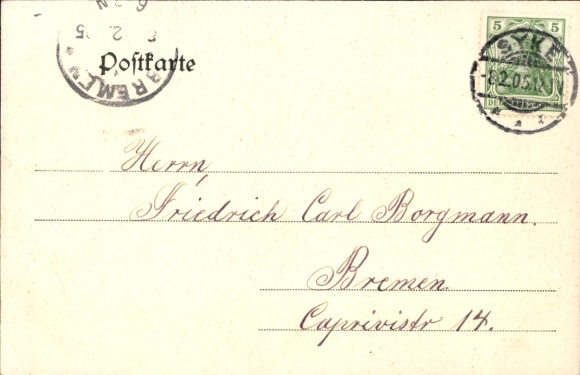 Postkarte
BREMEN
5 5
SYKE
-8.2.05.
DEUTSCHES REICH
Herrn,
Friedrich Carl Borgmann.
Bremen
Caprivistr 14.